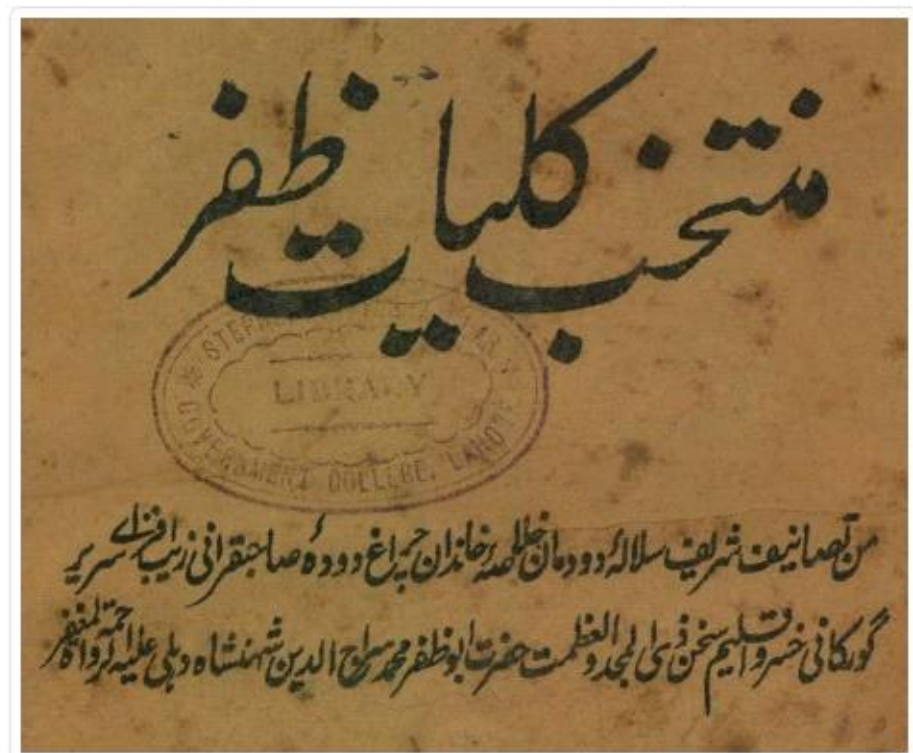 منتخب کلیات ظفر
STEPH
LIBRARY
GOVERNMENT COLLEGE, LAHORE
من تصانیف شریف سلالۂ دودمان خلاصۂ خاندان چراغ دودۂ صاحبقرانی زیب افزائے سریر
گورگانی خسرو اقلیم سخن ذی المجد والعظمت حضرت ابو ظفر محمد سراج الدین شہنشاہ دہلی علیہ الرحمة والمغفرة